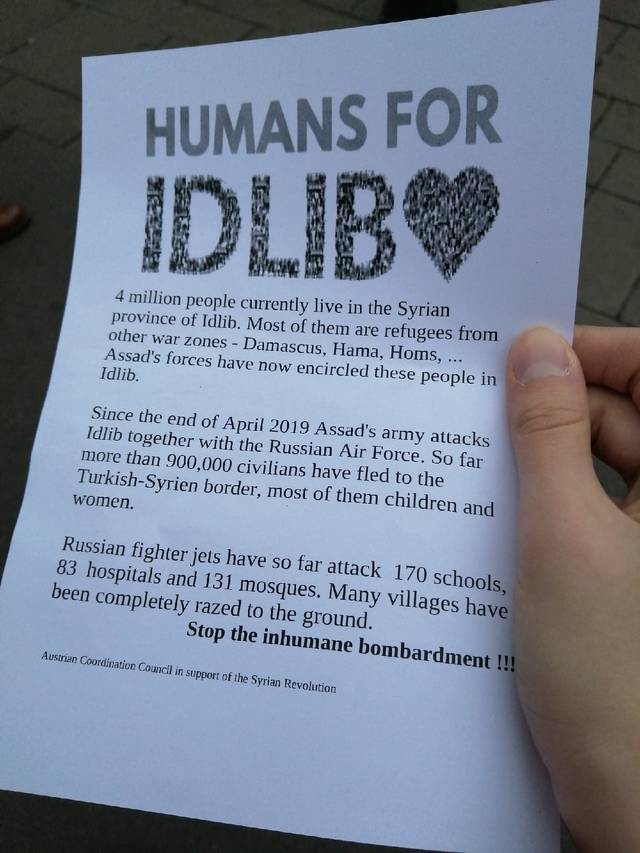 HUMANS FOR
IDLIB
4 million people currently live in the Syrian
province of Idlib. Most of them are refugees from
other war zones - Damascus, Hama, Homs, ...
Assad's forces have now encircled these people in
Idlib.
Since the end of April 2019 Assad's army attacks
Idlib together with the Russian Air Force. So far
more than 900,000 civilians have fled to the
Turkish-Syrien border, most of them children and
women.
Russian fighter jets have so far attack 170 schools,
83 hospitals and 131 mosques. Many villages have
been completely razed to the ground.
Stop the inhumane bombardment !!!
Austrian Coordination Council in support of the Syrian Revolution